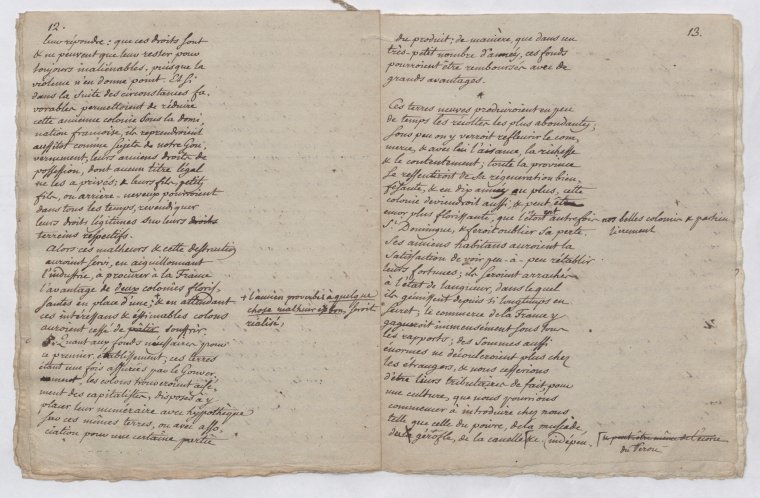 12.
leur répondre : que ces droits sont
& ne peuvent que leur rester pour
toujours inaliénables, puisque la
violence n'en donne point. Et si
dans la suite des circonstances fa-
vorables permettoient de réduire
cette ancienne colonie sous la domi-
nation françoise, ils reprendroient
aussitot comme sujets de notre Gou-
vernement, leurs anciens droits de
possession, dont aucun titre légal
ne les a privés; & leurs fils, petits
fils, ou arrière-neveux pourroient
dans tous les temps, revendiquer
leurs droits légitimes sur leurs droits
terreins respectifs.
Alors ces malheurs & cette destruction
auroient servi, en aiguillonnant
l'industrie, à procurer à la France
l'avantage de deux colonies floris-
santes en place d'une; & en attendant
+ l'ancien proverbe à quelque
chose malheur est bon seroit
réalisé,
ces intéressans & estimables colons
auroient cessé de souffrir.
Quant aux fonds nécessaires pour
ce premier établissement; ces terres
étant une fois assurées par le Gouver-
nement, les colons trouveroient aisé-
ment des capitalistes, disposés à y
placer leur numéraire avec hypothèque
sur ces mêmes terres, ou avec asso-
ciation pour une certaine partie
13.
du produit; de manière, que dans un
très-petit nombre d'années, ces fonds
pourroient être remboursés avec de
grands avantages.
Ces terres neuves produiroient en peu
de temps les récoltes les plus abondantes;
sous peu on y verroit refleurir le com-
merce, & avec lui l'aisance, la richesse
& le contentement; toute la province
se ressentiroit de sa régénération bien-
fesante, & en dix années au plus, cette
colonie deviendroit aussi, & peut être
encor plus florissante, que l'étoient autrefois nos belles colonies & particu-
lièrement
St Domingue, & feroit oublier sa perte.
Ses anciens habitans auroient la
satisfaction de voir peu-à-peu rétablir
leurs fortunes; ils seroient arrachés
à l'état de langueur, dans lequel
ils gémissent depuis si longtemps en
secret, le commerce de la France y
gagneroit immensément sous tous
les rapports; des sommes aussi
énormes ne découleroient plus chez
les étrangers, & nous cesserions
d'être leurs tributaires de fait, pour
une culture, que nous pourrions
commencer à introduire chez nous
telle que celle du poivre, de la muscade,
du gérofle, de la canelle & (indépen-
& peut être même de l'écorce
du Pérou